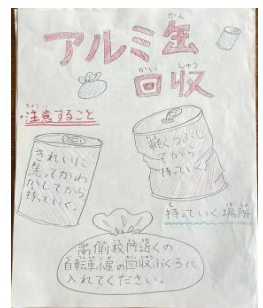 アルミ缶
回収
・注意すること
きれいに
洗ってかわ
かしてから
持っていく。
軽くつぶし
てから
持っていく。
持っていく場所
南側校門近くの
自転車小屋の回収ぶくろに
入れてください。